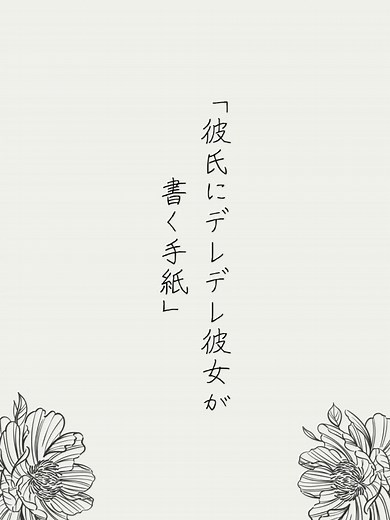 「彼氏にデレデレ彼女が
書く手紙」